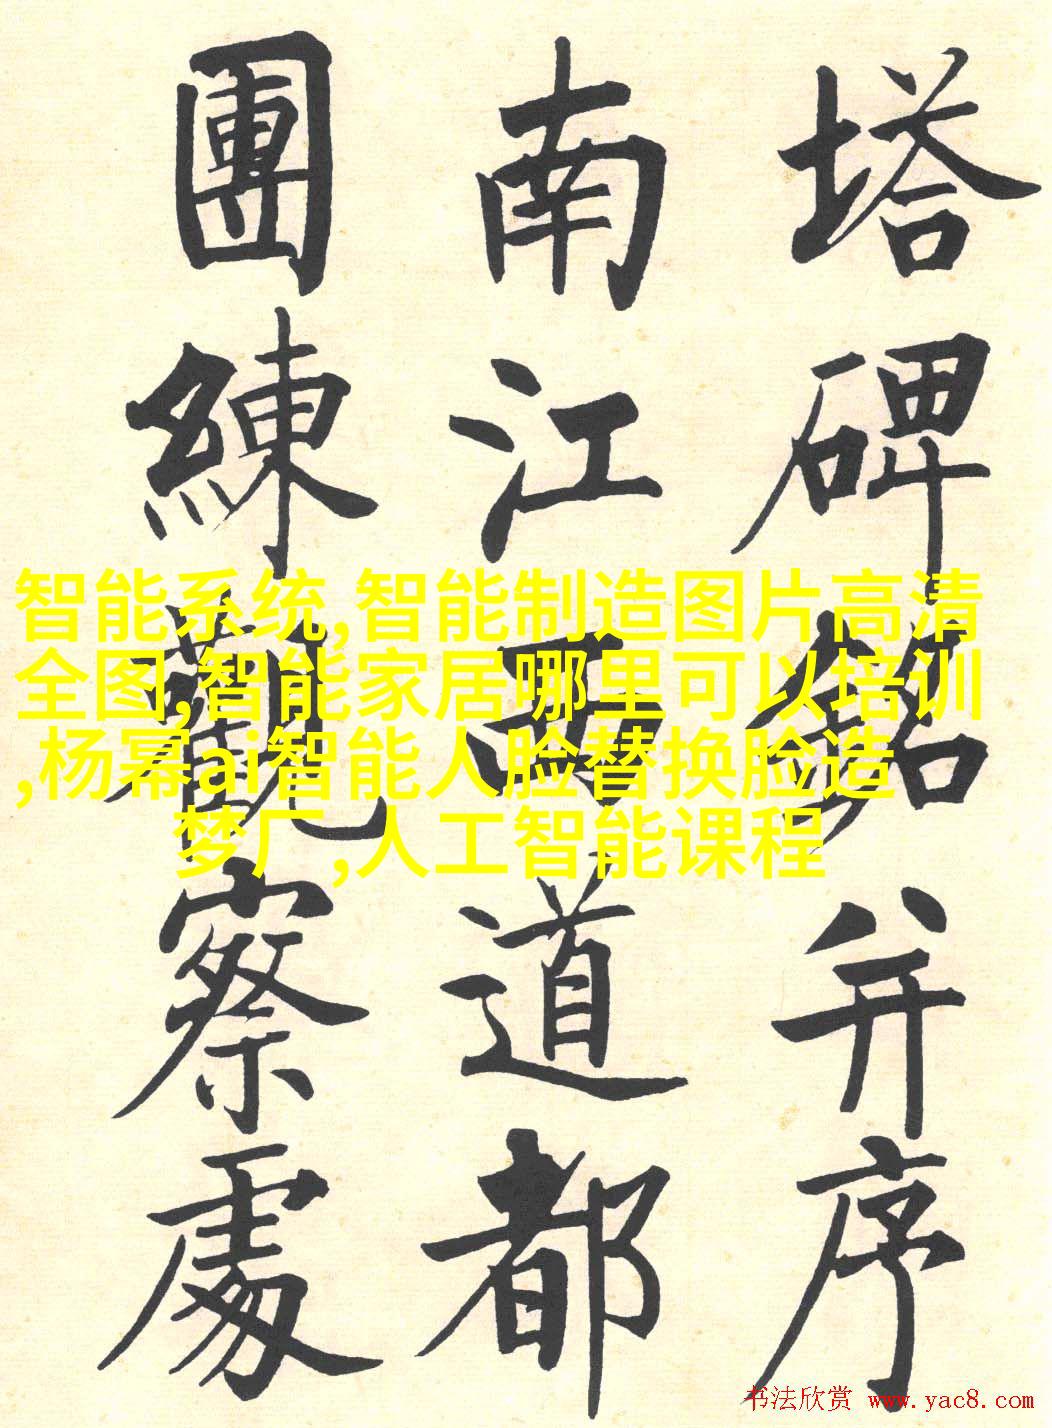 塔碑銘并序
南江西道都
團練觀察處
智能系统,智能制造图片高清
全图,智能家居哪里可以培训
,杨幂ai智能人脸替换脸造
梦厂,人工智能课程
书法欣赏 www.yac8.com